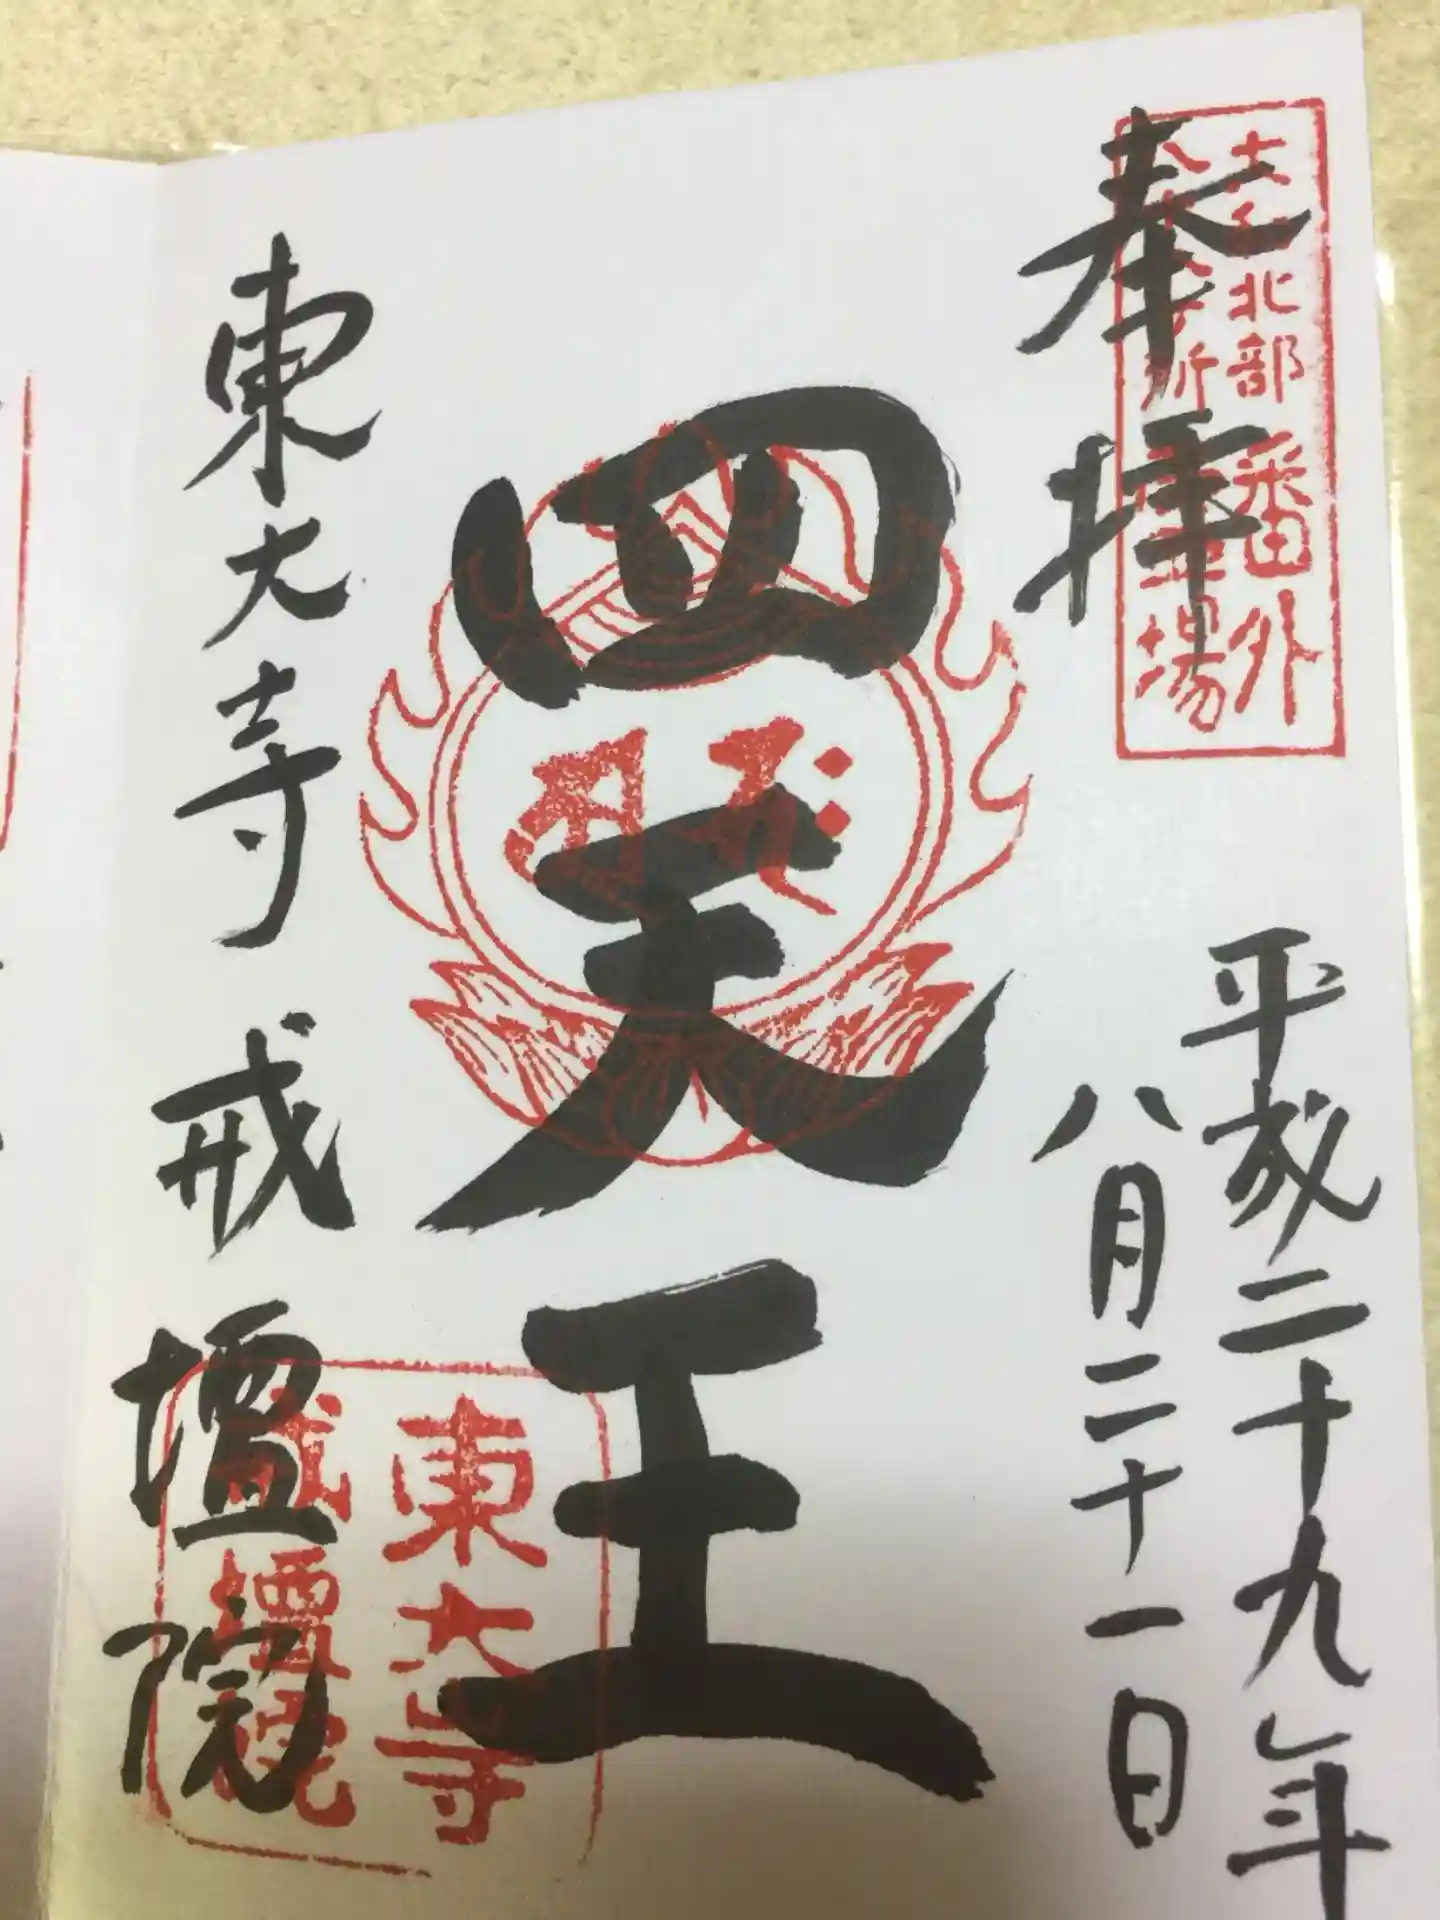 奉拝
大和北部
八十八ヶ所
番外
霊場
平成二十九年
八月二十一日
四天王
東大寺
戒壇院
東大寺 戒壇院